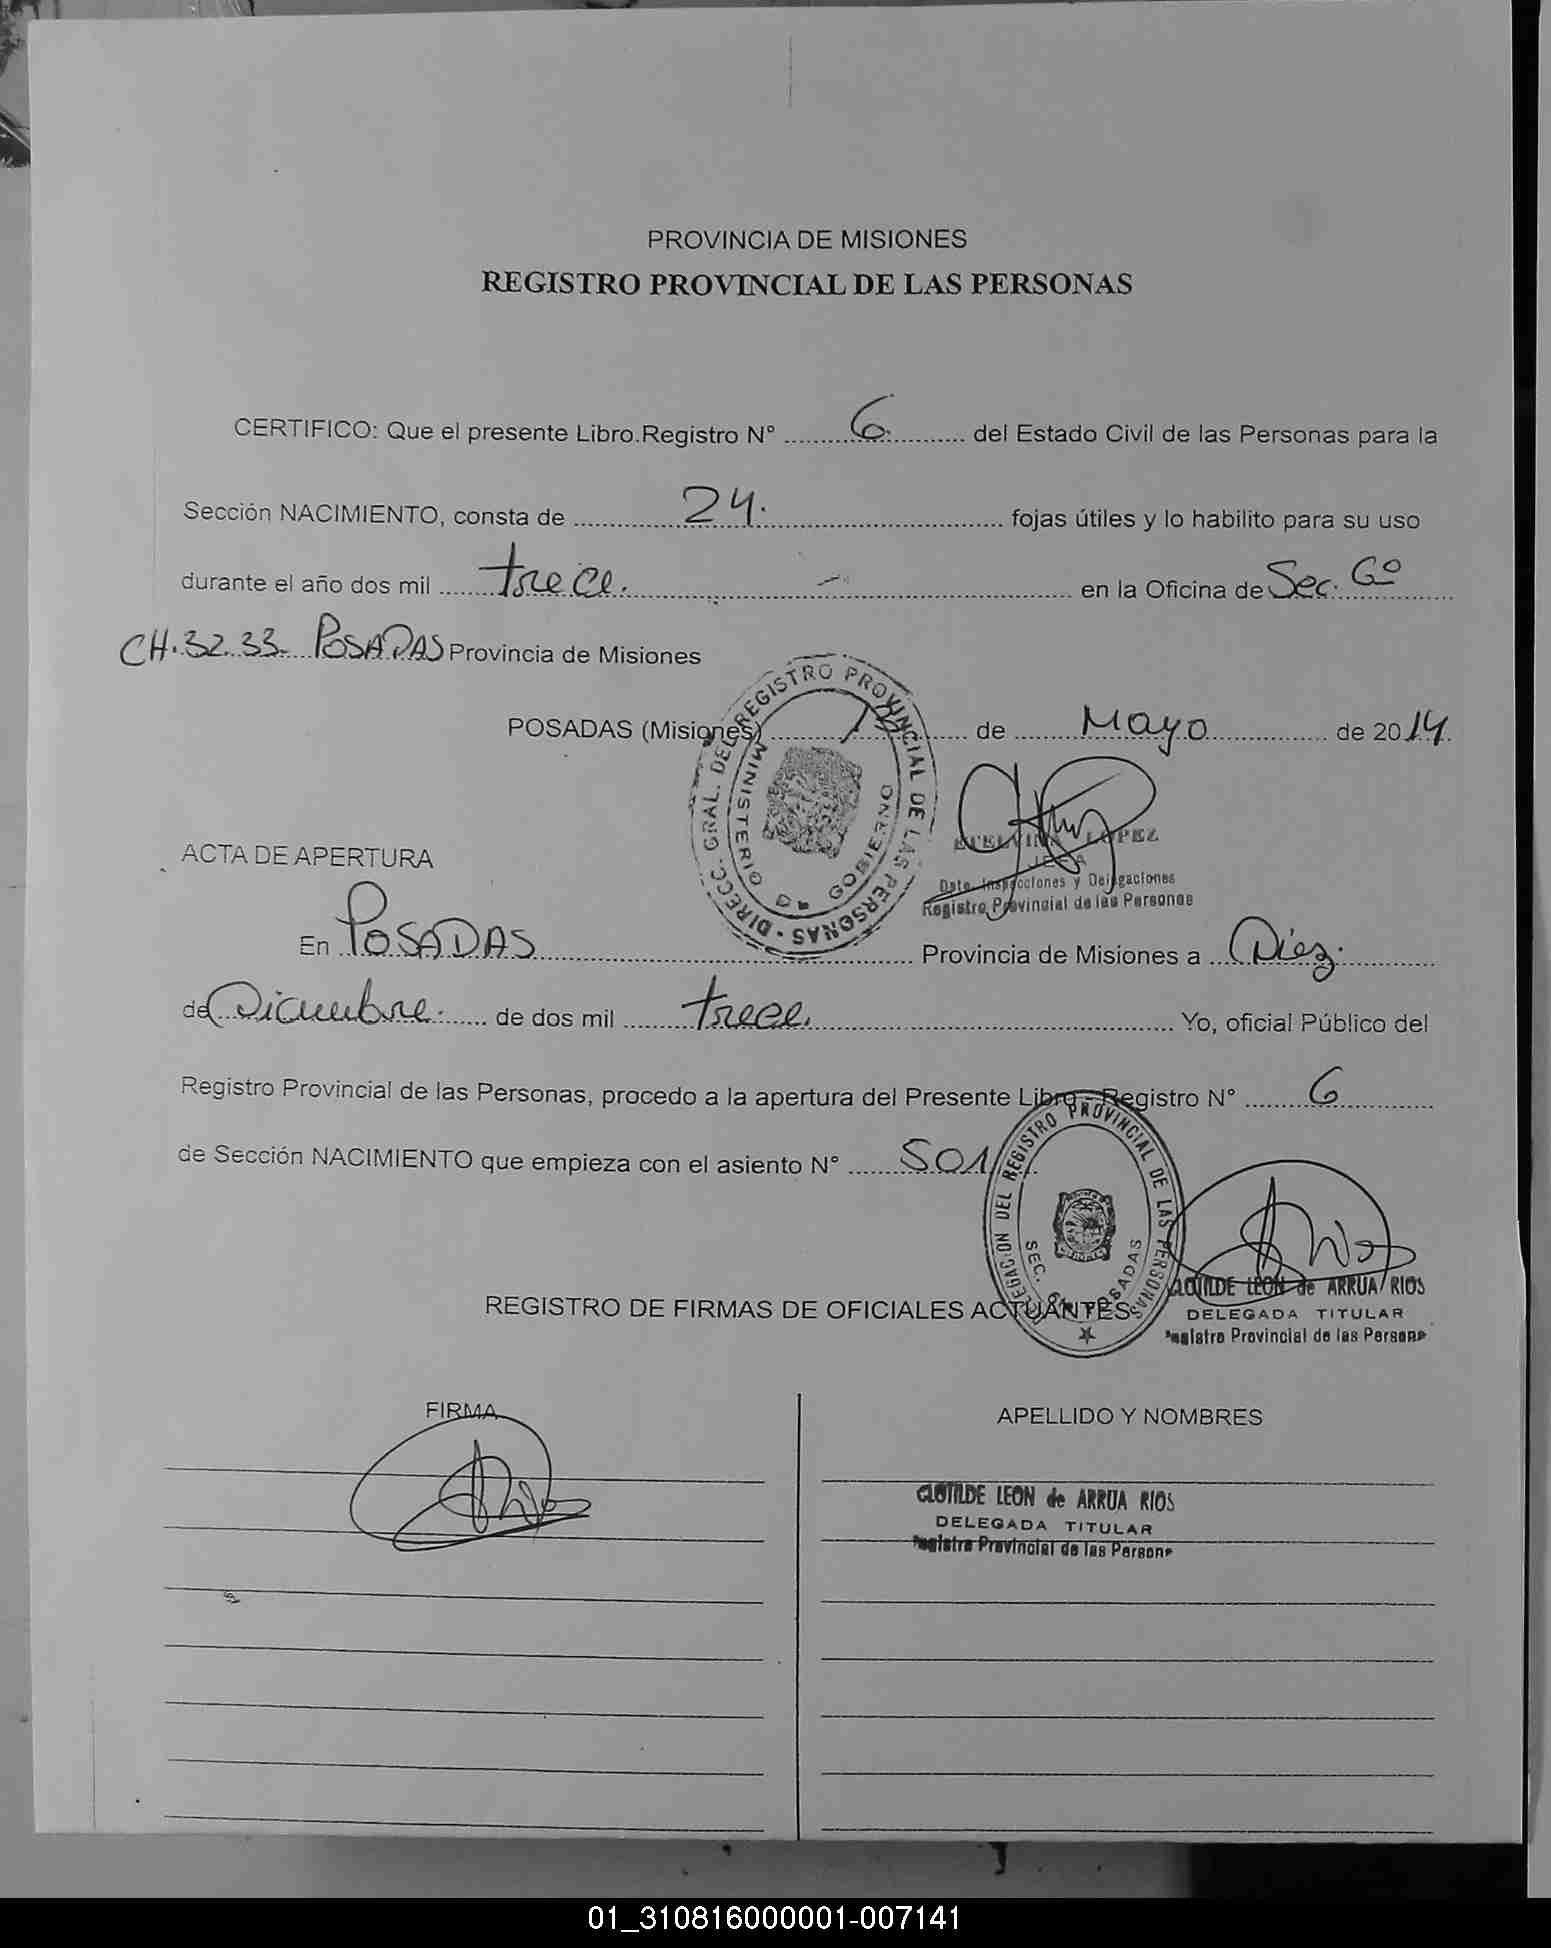 PROVINCIA DE MISIONES
REGISTRO PROVINCIAL DE LAS PERSONAS
CERTIFICO: Que el presente Libro.Registro N° 6 del Estado Civil de las Personas para la
Sección NACIMIENTO, consta de 24. fojas útiles y lo habilito para su uso
durante el año dos mil trece. en la Oficina de Sec. 6º
CH. 32.33. POSADAS Provincia de Misiones
POSADAS (Misiones) de Mayo de 2014.
DIRECC. GRAL. DEL REGISTRO PROVINCIAL DE LAS PERSONAS
MINISTERIO DE GOBIERNO
LOPEZ
JEFA
Dpto. Inspecciones y Delegaciones
Registro Provincial de las Personas
ACTA DE APERTURA
En POSADAS Provincia de Misiones a Diez.
de Diciembre. de dos mil trece. Yo, oficial Público del
Registro Provincial de las Personas, procedo a la apertura del Presente Libro - Registro N° 6
de Sección NACIMIENTO que empieza con el asiento N° 501
DELEGACION DEL REGISTRO PROVINCIAL DE LAS PERSONAS
SEC. 6ta POSADAS
CLOTILDE LEON de ARRUA RIOS
DELEGADA TITULAR
Registro Provincial de las Persona
REGISTRO DE FIRMAS DE OFICIALES ACTUANTES
FIRMA
APELLIDO Y NOMBRES
CLOTILDE LEON de ARRUA RIOS
DELEGADA TITULAR
Registro Provincial de las Persona
01_310816000001-007141